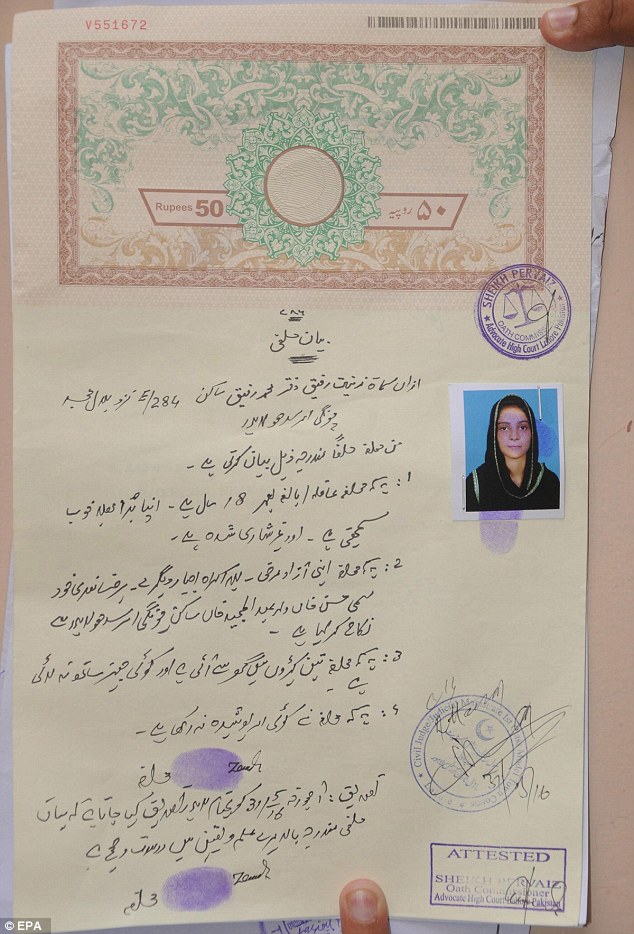 V551672
Rupees 50
۵۰ روپیہ
SHEIKH PERVAIZ
OATH COMMISS
Advocate High Court Lahore Pakistan
۷۸۶
بیان حلفی
ازاں مسماۃ زینت رفیق دختر محمد رفیق ساکن 284/E نزد
چونگی امرسدھو لاہور
من حلفہ حلفاً مندرجہ ذیل بیان کرتی ہے۔
1: یہ کہ محلفہ عاقلہ / بالغ بعمر 18 سال ہے۔ اپنا برا بھلا خوب
سمجھتی ہے۔ اور غیر شادی شدہ ہے۔
2: یہ کہ محلفہ اپنی آزاد مرضی۔ بلا اکراہ اجبار دیگرے۔ برضامندی خود
مسمی حسن خاں ولد عبدالمجید خاں ساکن چونگی امرسدھو لاہور سے
نکاح کر لیا ہے۔
3: یہ کہ محلفہ تین کپڑوں میں گھر سے آئی ہے اور کوئی چیز ساتھ نہ لائی
ہے۔
4: یہ کہ محلفہ نے کوئی امر پوشیدہ نہ رکھا ہے۔
محلفہ
Civil Judge/Judicial
تصدیق: آج مورخہ بمقام لاہور تصدیق کیا جاتا ہے کہ بیان
حلفی مندرجہ بالا میرے علم و یقین میں درست و صحیح ہے
محلفہ
ATTESTED
SHEIKH PERVAIZ
Oath Commissioner
Advocate High Court Lahore Pakistan
© EPA